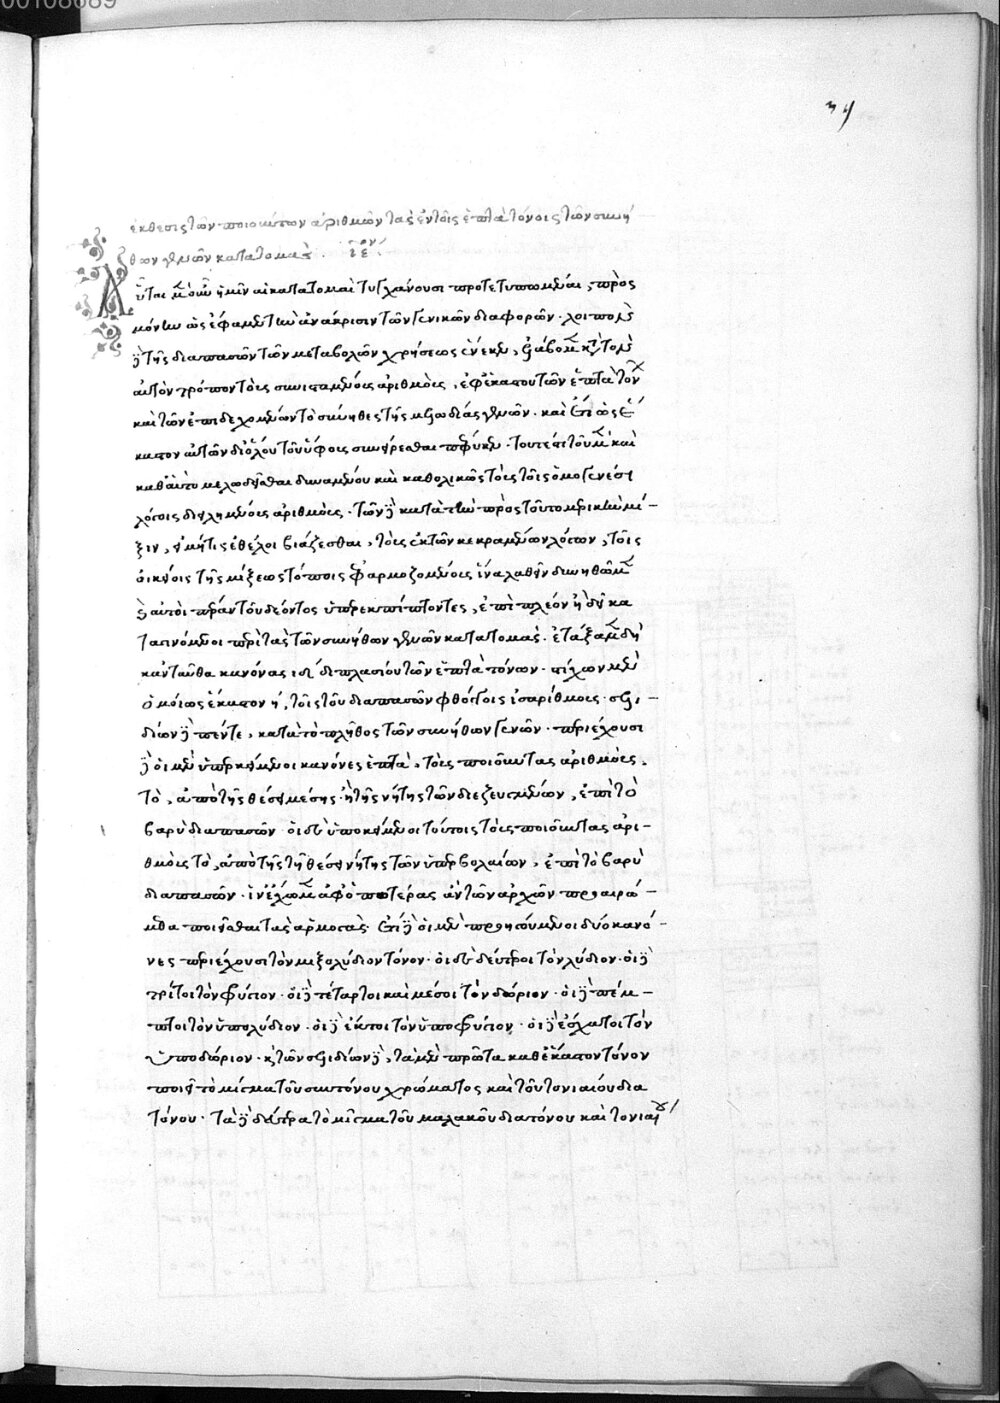 00108089
39
ἔκθεσις τῶν ποιούντων ἀριθμῶν τὰς ἐν τοῖς ἑπτὰ τόνοις τῶν συνή
θων γενῶν κατατομάς. ιεον
Αὗται μὲν οὖν ἡμῖν αἱ κατατομαὶ τυγχάνουσι προτετυπωμέναι, πρὸς
μόνην ὡς ἔφαμεν τὴν ἀνάκρισιν τῶν γενικῶν διαφορῶν· λοιπὸν
δὲ τῆς διαπασῶν τῶν μεταβολῶν χρήσεως ἕνεκεν, ἐλάβομεν κατὰ τὸν
αὐτὸν τρόπον τοὺς συνισταμένους ἀριθμοὺς, ἐφ' ἑκάστου τῶν ἑπτὰ τόνων
καὶ τῶν ἐπιδεχομένων τὸ σύνηθες τῆς μελωδίας γενῶν· καὶ ἔτι ὡς ἕ
καστον αὐτῶν δι' ὅλου τοῦ ὕφους συμφέρεσθαι πέφυκεν· τουτέστι τοῦ μὲν καὶ
καθ' αὑτὸ μελωδεῖσθαι δυναμένου καὶ καθολικῶς τοὺς τοῖς ὁμογενέσι
λόγοις διειλημμένους ἀριθμοὺς· τῶν δὲ κατὰ τὴν πρὸς τοῦτο μετρικὴν μί-
ξιν, εἰ μή τις ἐθέλοι βιάζεσθαι, τοὺς ἐκ τῶν κεκραμένων λόγων, τοῖς
οἰκείοις τῆς μίξεως τόποις ἐφαρμοζομένους ἵνα λαθεῖν δυνηθῶμεν
ἑαυτοὶ πέραν τοῦ δέοντος ὑπερεκπίπτοντες, ἐπὶ πλέον ἢ δεῖ κα
ταγινόμενοι περὶ τὰς τῶν συνήθων γενῶν κατατομάς. ἐτάξαμεν δὴ
κἀνταῦθα κανόνας ιδ διπλασίους τῶν ἑπτὰ τόνων· στίχων μὲν
ὁμοίως ἕκαστον η, τοῖς τοῦ διαπασῶν φθόγγοις ἰσαρίθμοις· σελι-
δίων δὲ πέντε, κατὰ τὸ πλῆθος τῶν συνήθων γενῶν· περιέχουσι
δὲ οἱ μὲν ὑπερκείμενοι κανόνες ἑπτὰ, τοὺς ποιοῦντας ἀριθμοὺς,
τὸ, ἀπὸ τῆς θέσει μέσης ἢ τῆς νήτης τῶν διεζευγμένων, ἐπὶ τὸ
βαρὺ διαπασῶν· οἱ δὲ ὑποκείμενοι τούτοις τοὺς ποιοῦντας ἀρι-
θμοὺς τὸ, ἀπὸ τῆς τῇ θέσει νήτης τῶν ὑπερβολαίων, ἐπὶ τὸ βαρὺ
διαπασῶν· ἵν' ἔχωμεν ἀφ' ὁποτέρας ἂν τῶν ἀρχῶν προαιρώ-
μεθα ποιεῖσθαι τὰς ἁρμογάς· ἔτι δὲ οἱ μὲν προηγούμενοι δύο κανό-
νες περιέχουσι τὸν μιξολύδιον τόνον· οἱ δὲ δεύτεροι τὸν λύδιον· οἱ δὲ
τρίτοι τὸν φρύγιον· οἱ δὲ τέταρτοι καὶ μέσοι τὸν δώριον· οἱ δὲ πέμ-
πτοι τὸν ὑπολύδιον· οἱ δὲ ἕκτοι τὸν ὑποφρύγιον· οἱ δὲ ἔσχατοι τὸν
ὑποδώριον· καὶ τῶν σελιδίων δὲ, τὰ μὲν πρῶτα καθ' ἕκαστον τόνον
ποιεῖ τὸ μίγμα τοῦ συντόνου χρώματος καὶ τοῦ τονιαίου δια
τόνου· τὰ δὲ δεύτερα τὸ μῖγμα τοῦ μαλακοῦ διατόνου καὶ τονιαίου